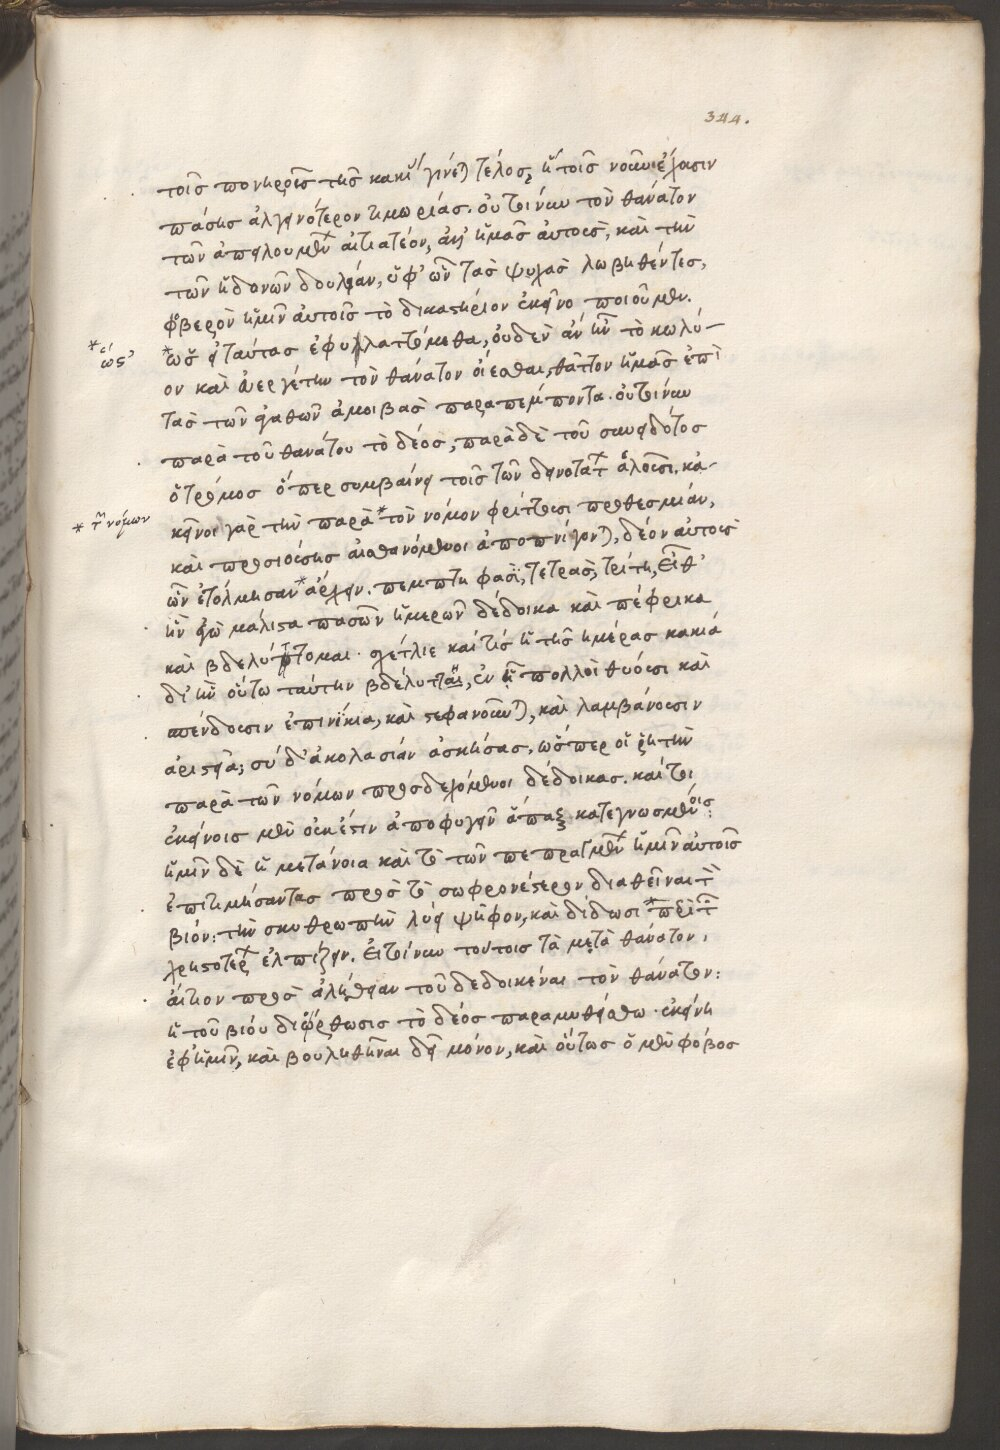 344.
τοῖς πονηροῖς τῆς κακί γίνε) τέλος, ἢ τοῖς νοῦν ἔχουσιν
πάσης ἀλγεινότερον τιμωρίας. οὐ τοίνυν τὸν θάνατον
τῶν ἀπειλουμένων αἰτιατέον, ἀλλ' ἡμᾶς αὐτοὺς, καὶ τὴν
τῶν ἡδονῶν δουλείαν, ὑφ' ὧν τὰς ψυχὰς λωβηθέντες,
φοβερὸν ἡμῖν αὐτοῖς τὸ δικαστήριον ἐκεῖνο ποιοῦμεν.
* ὡς εἰ * ὡς εἰ ταύτας ἐφυλαττόμεθα, οὐδὲν ἂν ἦν τὸ κωλύ-
ον καὶ εὐεργέτην τὸν θάνατον οἴεσθαι, θᾶττον ἡμᾶς ἐπὶ
τὰς τῶν ἀγαθῶν ἀμοιβὰς παραπέμποντα. οὐ τοίνυν
παρὰ τοῦ θανάτου τὸ δέος, παρὰ δὲ τοῦ συνειδότος
ὁ τρόμος ὅπερ συμβαίνει τοῖς τῶν δεινοτάτων ἁλοῦσι. κἀ-
* τῶν νόμων κεῖνοι γὰρ τὴν παρὰ * τὸν νόμον φρίττουσι προθεσμίαν,
καὶ προσιούσης αἰσθανόμενοι ἀποπνίγον), δέον αὐτοὺς
ὧν ἐτόλμησαν * ἄρχειν. πέμπτη φασὶ, τετρὰς, τρίτη, εἶθ'
ἣν ἐγὼ μάλιστα πασῶν ἡμερῶν δέδοικα καὶ πέφρικα
καὶ βδελύττομαι. σχέτλιε καὶ τίς ἡ τῆς ἡμέρας κακία
δι' ἣν οὕτω ταύτην βδελύττῃ, ἐν ᾗ πολλοὶ θύουσι καὶ
σπένδουσιν ἐπινίκια, καὶ στεφανοῦν), καὶ λαμβάνουσιν
ἀριστεῖα; σύ δ' ἀκολασίαν ἀσκήσας, ὥσπερ οἱ ῥητὴν
παρὰ τῶν νόμων προσδεχόμενοι δέδοικας. καίτοι
ἐκείνοις μὲν οὐκ ἔστιν ἀποφυγεῖν ἅπαξ κατεγνωσμένοις:
ἡμῖν δὲ ἡ μετάνοια καὶ τὸ τῶν πεπραγμένων ἡμῖν αὐτοῖς
ἐπιτιμήσαντας πρὸς τὸ σωφρονέστερον διαθεῖναι τὸν
βίον: τὴν σκυθρωπὴν λύει ψῆφον, καὶ δίδωσι * περὶ τῶν
χρηστοτέρων ἐλπίζειν. εἰ τοίνυν τούτοις τὰ μετὰ θάνατον,
αἴτιον πρὸς ἀλήθειαν τοῦ δεδοικέναι τὸν θάνατον:
ἡ τοῦ βίου διόρθωσις τὸ δέος παραμυθείσθω. ἐκείνη
ἐφ' ἡμῖν, καὶ βουληθῆναι δεῖ μόνον, καὶ οὕτως ὁ μὲν φόβος